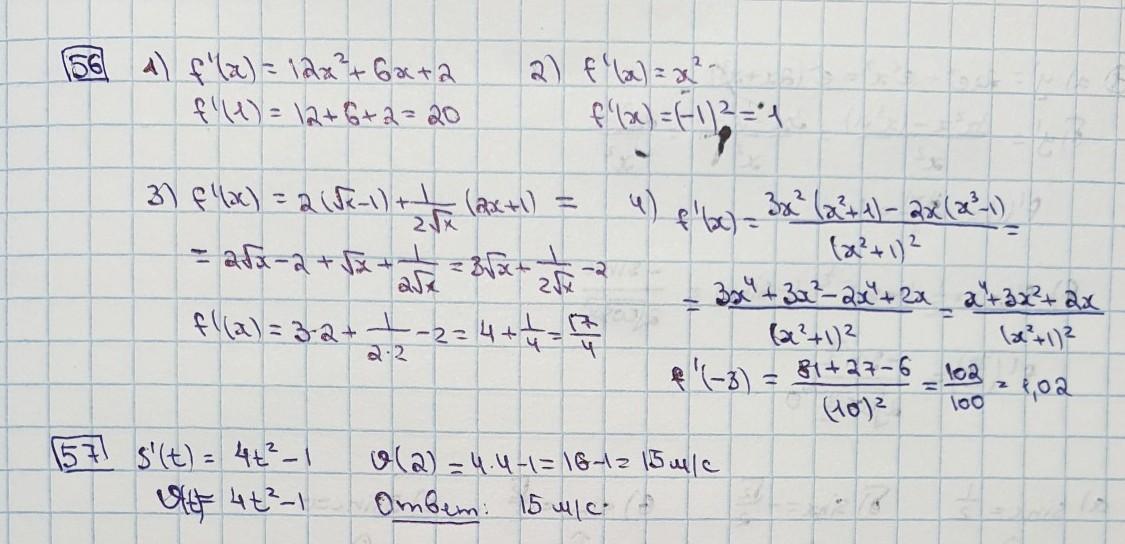 56 1) f'(x) = 12x² + 6x + 2
f'(1) = 12 + 6 + 2 = 20
2) f'(x) = x²
f'(x) = (-1)² = 1
3) f'(x) = 2(√x - 1) + 1/(2√x) (2x + 1) =
= 2√x - 2 + √x + 1/(2√x) = 3√x + 1/(2√x) - 2
f'(x) = 3·2 + 1/(2·2) - 2 = 4 + 1/4 = 17/4
4) f'(x) = (3x²(x² + 1) - 2x(x³ - 1))/(x² + 1)² =
= (3x⁴ + 3x² - 2x⁴ + 2x)/(x² + 1)² = (x⁴ + 3x² + 2x)/(x² + 1)²
f'(-3) = (81 + 27 - 6)/(10)² = 102/100 = 1,02
57 S'(t) = 4t² - 1 υ(2) = 4·4 - 1 = 16 - 1 = 15 м/с
υ(t) = 4t² - 1 Ответ: 15 м/с